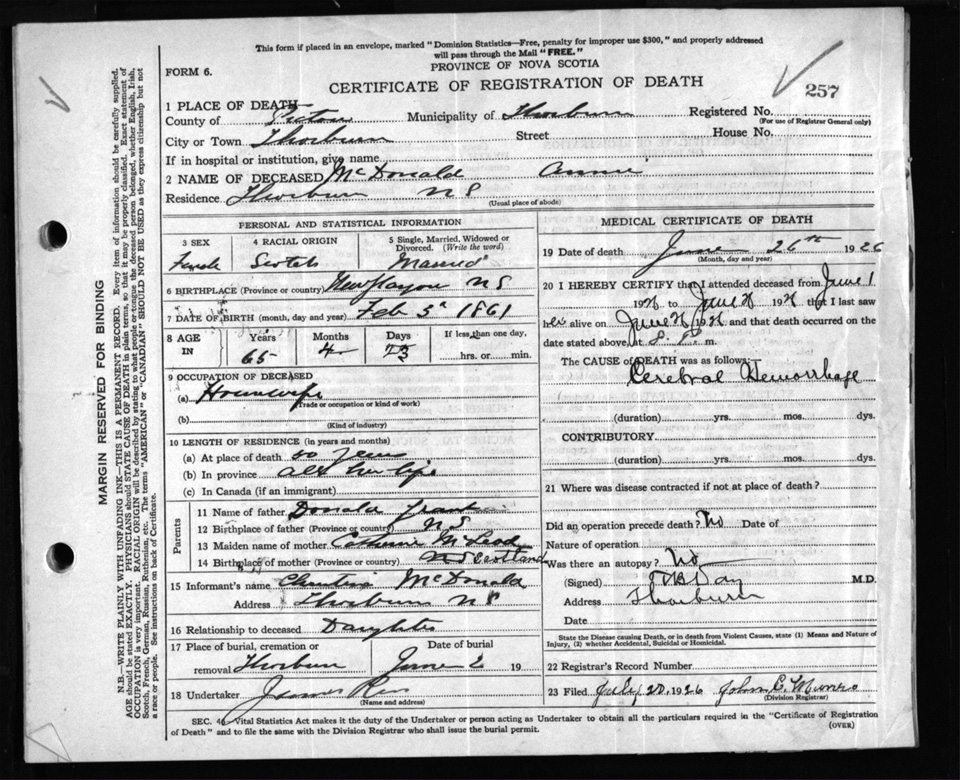 This form if placed in an envelope, marked "Dominion Statistics—Free, penalty for improper use $300," and properly addressed
will pass through the Mail "FREE."
PROVINCE OF NOVA SCOTIA
FORM 6.
CERTIFICATE OF REGISTRATION OF DEATH
257
1 PLACE OF DEATH
County of Pictou Municipality of Thorburn Registered No.
(For use of Registrar General only)
City or Town Thorburn Street House No.
If in hospital or institution, give name
2 NAME OF DECEASED McDonald Annie
Residence Thorburn N S
(Usual place of abode)
PERSONAL AND STATISTICAL INFORMATION
3 SEX 4 RACIAL ORIGIN 5 Single, Married, Widowed or
Divorced. (Write the word)
Female Scotch Married
6 BIRTHPLACE (Province or country) N S
7 DATE OF BIRTH (month, day and year) Feb 3 1861
8 AGE IN Years Months Days If less than one day,
65 4 23 hrs. or min.
9 OCCUPATION OF DECEASED
(a) Housewife
(Trade or occupation or kind of work)
(b)
(Kind of industry)
10 LENGTH OF RESIDENCE (in years and months)
(a) At place of death years
(b) In province all her life
(c) In Canada (if an immigrant)
Parents
11 Name of father Donald
12 Birthplace of father (Province or country) N S
13 Maiden name of mother Catherine McLeod
14 Birthplace of mother (Province or country) N S Scotland
15 Informant's name Christie McDonald
Address Thorburn N S
16 Relationship to deceased Daughter
17 Place of burial, cremation or
removal Thorburn June 2 19
18 Undertaker James
(Name and address)
MEDICAL CERTIFICATE OF DEATH
19 Date of death June 26th 1926
(Month, day and year)
20 I HEREBY CERTIFY that I attended deceased from June 1
1926 to June 26 1926 that I last saw
her alive on June 26 1926 and that death occurred on
date stated above, at P. m.
The CAUSE of DEATH was as follows:
Cerebral Hemorrhage
(duration) yrs. mos. dys.
CONTRIBUTORY
(duration) yrs. mos. dys.
21 Where was disease contracted if not at place of death?
Did an operation precede death? No Date of
Nature of operation
Was there an autopsy? No
(Signed) Day M.D.
Address Thorburn
Date
State the Disease causing Death, or in death from Violent Causes, state (1) Means and Nature of
Injury, (2) whether Accidental, Suicidal or Homicidal.
22 Registrar's Record Number
23 Filed July 20, 1926 John C. Munro
(Division Registrar)
SEC. 46—Vital Statistics Act makes it the duty of the Undertaker or person acting as Undertaker to obtain all the particulars required in the "Certificate of Registration
of Death" and to file the same with the Division Registrar who shall issue the burial permit.
(OVER)
MARGIN RESERVED FOR BINDING
N.B.—WRITE PLAINLY WITH UNFADING INK—THIS IS A PERMANENT RECORD. Every item of information should be carefully supplied.
AGE should be stated EXACTLY. PHYSICIANS should STATE CAUSE OF DEATH in plain terms, so that it may be properly classified. Exact statement of
OCCUPATION is very important. RACIAL ORIGIN will be described by stating to what people or tongue the deceased person belonged, whether English, Irish,
Scotch, French, German, Russian, Ruthenian, etc. The terms "AMERICAN" or "CANADIAN" SHOULD NOT BE USED as they express citizenship but not
a race or people. See instructions on back of Certificate.